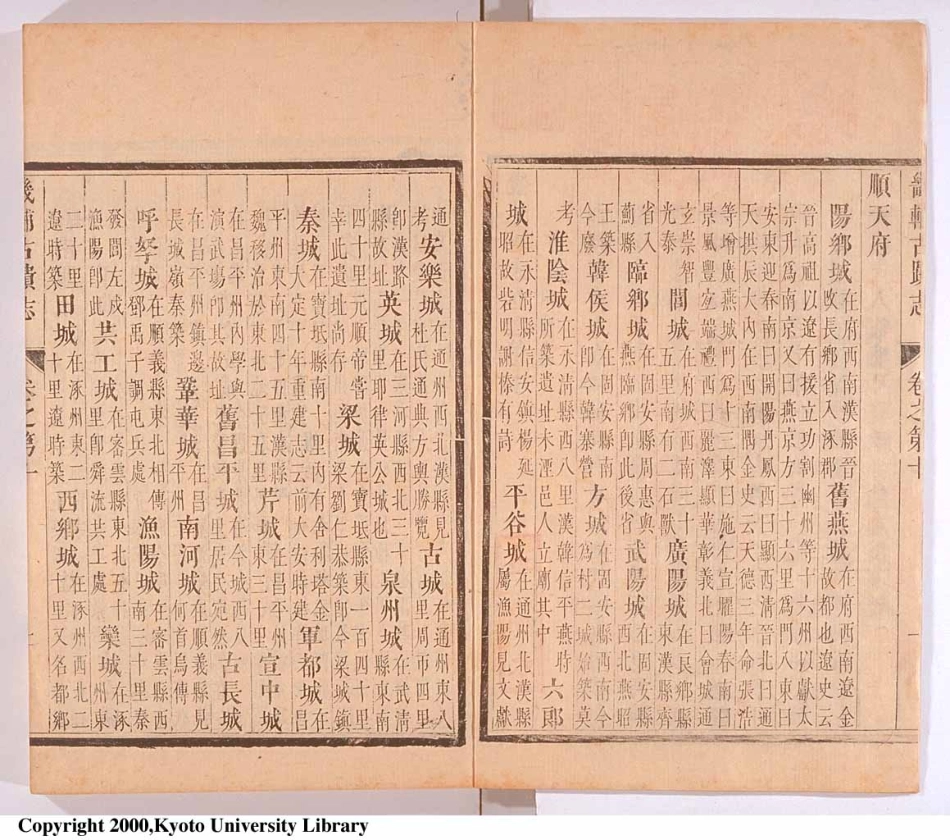 畿輔古蹟志 卷之第十 一
順天府
陽鄉城在府西南漢縣晉改長鄉省入涿郡 舊燕城在府西南遼金故都也遼史云
晉高祖以遼有援立功割幽州等十六州以獻太宗升為南京又曰燕京方三十六里為門八東曰
安東迎春南曰開陽丹鳳西曰顯西清晉北曰通天拱辰大內在西南隅金史云天德三年命張浩
等增廣燕城門為十三東曰施仁宣曜陽春南曰景風豐宜端禮西曰麗澤顥華彰義北曰會城通
玄崇智光泰 閻城在府城西南三五里南有二石獸 廣陽城在良鄉縣東漢縣齊
省入薊縣 臨鄉城在固安縣周惠與燕臨鄉即此後省 武陽城在固安縣西北燕昭
王築今廢 韓侯城在固安縣即今韓寨營 方城在固安縣南今為村二城始築莫
考 淮陰城在永清縣西八里漢韓信平燕時所築遺址未湮邑人立廟其中 六郎
城在永清縣信安鎮楊延昭故砦明謝榛有詩 平谷城在通州北漢縣屬漁陽見文獻
通考 安樂城在通州西北漢縣見杜氏通典方輿勝覽 古城在通州東八里周帀四里
即漢路縣故址 英城在三河縣西北三十里耶律英公城也 泉州城在武清縣東南
四十里元順帝嘗幸此遺址尚存 梁城在寶坻縣東一百四十里梁劉仁恭築即今梁城鎮
秦城在寶坻縣南十里內有舍利塔金大定十年重建志云前大安時建 軍都城在昌
平州東南四十五里漢縣魏移治於東北二十五里 芹城在昌平州東三十里 宣中城
在昌平州內學與演武場即其故址 舊昌平城在今城西八里居民宛然 古長城
在昌平州鎮邊長城嶺秦築 鞏華城在昌平州 南河城在順義縣見何首烏傳
呼拏城在順義縣東北相傳鄧禹子訓屯兵處 漁陽城在密雲縣西南三十里秦
發閭左戍漁陽即此 共工城在密雲縣東北五十里即舜流共工處 欒城在涿州東
二十里遼時築 田城在涿州東二十里遼時築 西鄉城在涿州西北二十里又名都鄉
畿輔古蹟志 卷之第十
Copyright 2000,Kyoto University Library